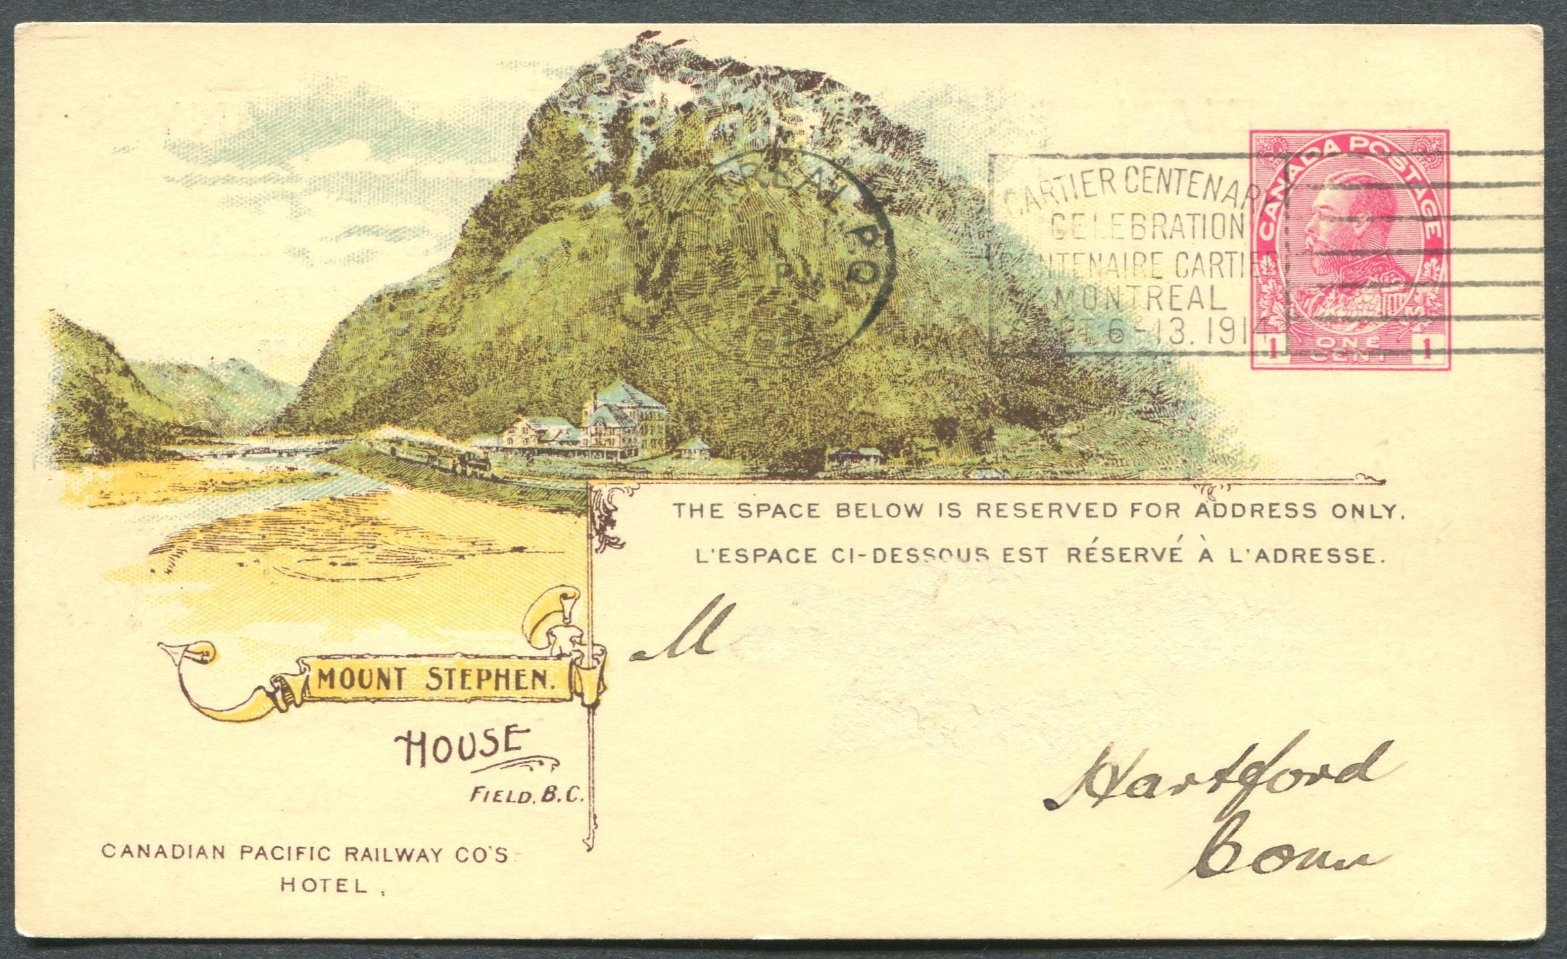 CANADA POSTAGE
ONE CENT
1 1
CARTIER CENTENARY
CELEBRATION
CENTENAIRE CARTIER
MONTREAL
SEPT. 6-13. 1914
MONTREAL, P.Q.
THE SPACE BELOW IS RESERVED FOR ADDRESS ONLY.
L'ESPACE CI-DESSOUS EST RÉSERVÉ À L'ADRESSE.
M
Hartford
Conn
MOUNT STEPHEN.
HOUSE
FIELD, B.C.
CANADIAN PACIFIC RAILWAY CO'S
HOTEL,